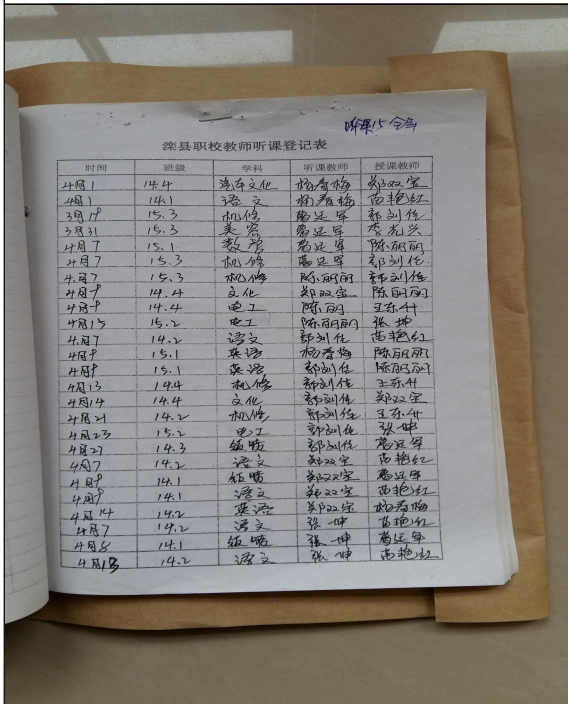 滦县职校教师听课登记表
时间 班级 学科 听课教师 授课教师
4月1 14.4 汽车文化 杨春梅 郑双宝
4月1 14.1 语文 杨春梅 苗艳红
3月19 15.3 机修 葛延军 郭刘任
3月31 15.3 美容 葛延军 李光兴
4月7 15.1 数学 葛延军 陈丽丽
4月7 15.3 机修 葛延军 郭刘任
4月7 15.3 机修 陈丽丽 郭刘任
4月9 14.4 文化 郑双宝 陈丽丽
4月9 14.4 电工 陈丽 王东升
4月13 15.2 电工 陈丽丽 张坤
4月7 14.2 语文 郭刘任 苗艳红
4月9 15.1 英语 杨春梅 陈丽丽
4月9 15.1 英语 郭刘任 陈丽丽
4月13 14.4 机修 郭刘任 王东升
4月14 14.4 文化 郭刘任 郑双宝
4月21 14.2 机修 郭刘任 王东升
4月23 15.2 电工 郭刘任 张坤
4月27 14.3 钣喷 郭刘任 葛延军
4月7 14.2 语文 郑双宝 苗艳红
4月9 14.1 钣喷 郑双宝 葛延军
4月9 14.1 语文 郑双宝 苗艳红
4月14 14.2 英语 郑双宝 杨春梅
4月7 14.2 语文 张坤 苗艳红
4月8 14.1 钣喷 张坤 葛延军
4月13 14.2 语文 张坤 苗艳红